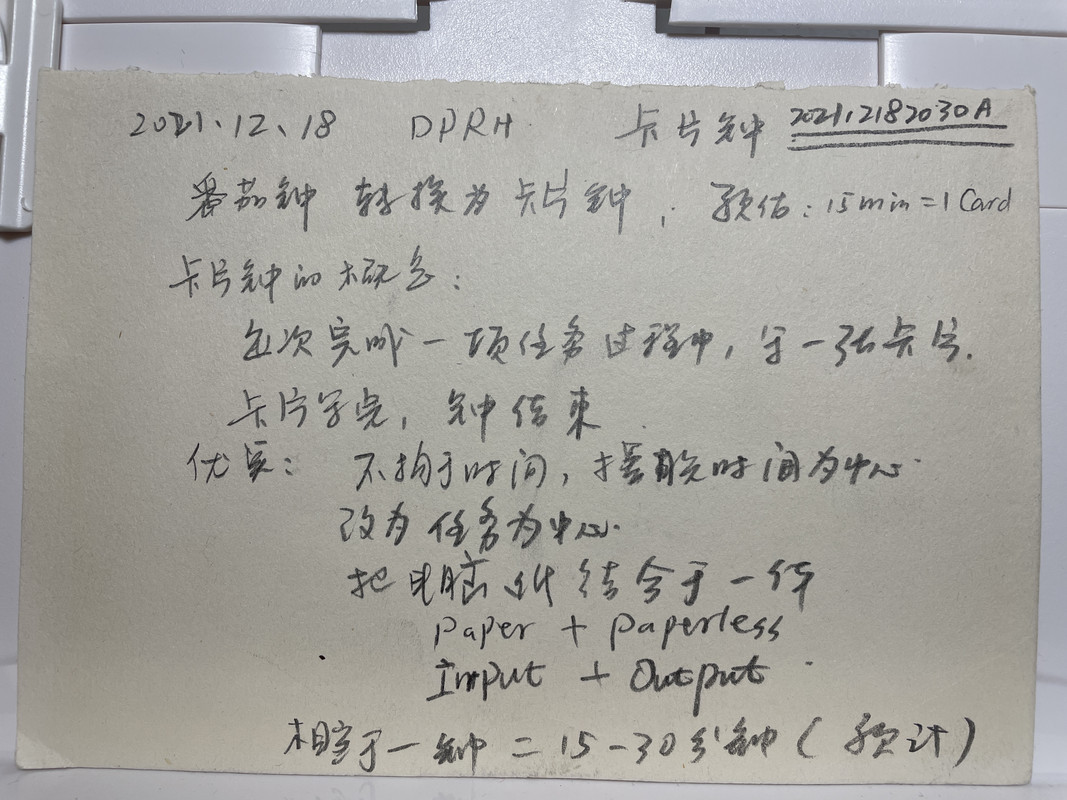 2021.12.18 DPRH 卡片钟 202112182030A
番茄钟 转换为 卡片钟; 预估:15min=1 Card
卡片钟的概念:
每次完成一项任务过程中,写一张卡片.
卡片写完,钟结束
优点: 不拘于时间,摆脱时间为中心.
改为 任务为中心.
把电脑 纸 结合于一体
paper + paperless
Input + Output
相当于一钟 = 15-30分钟(预计)